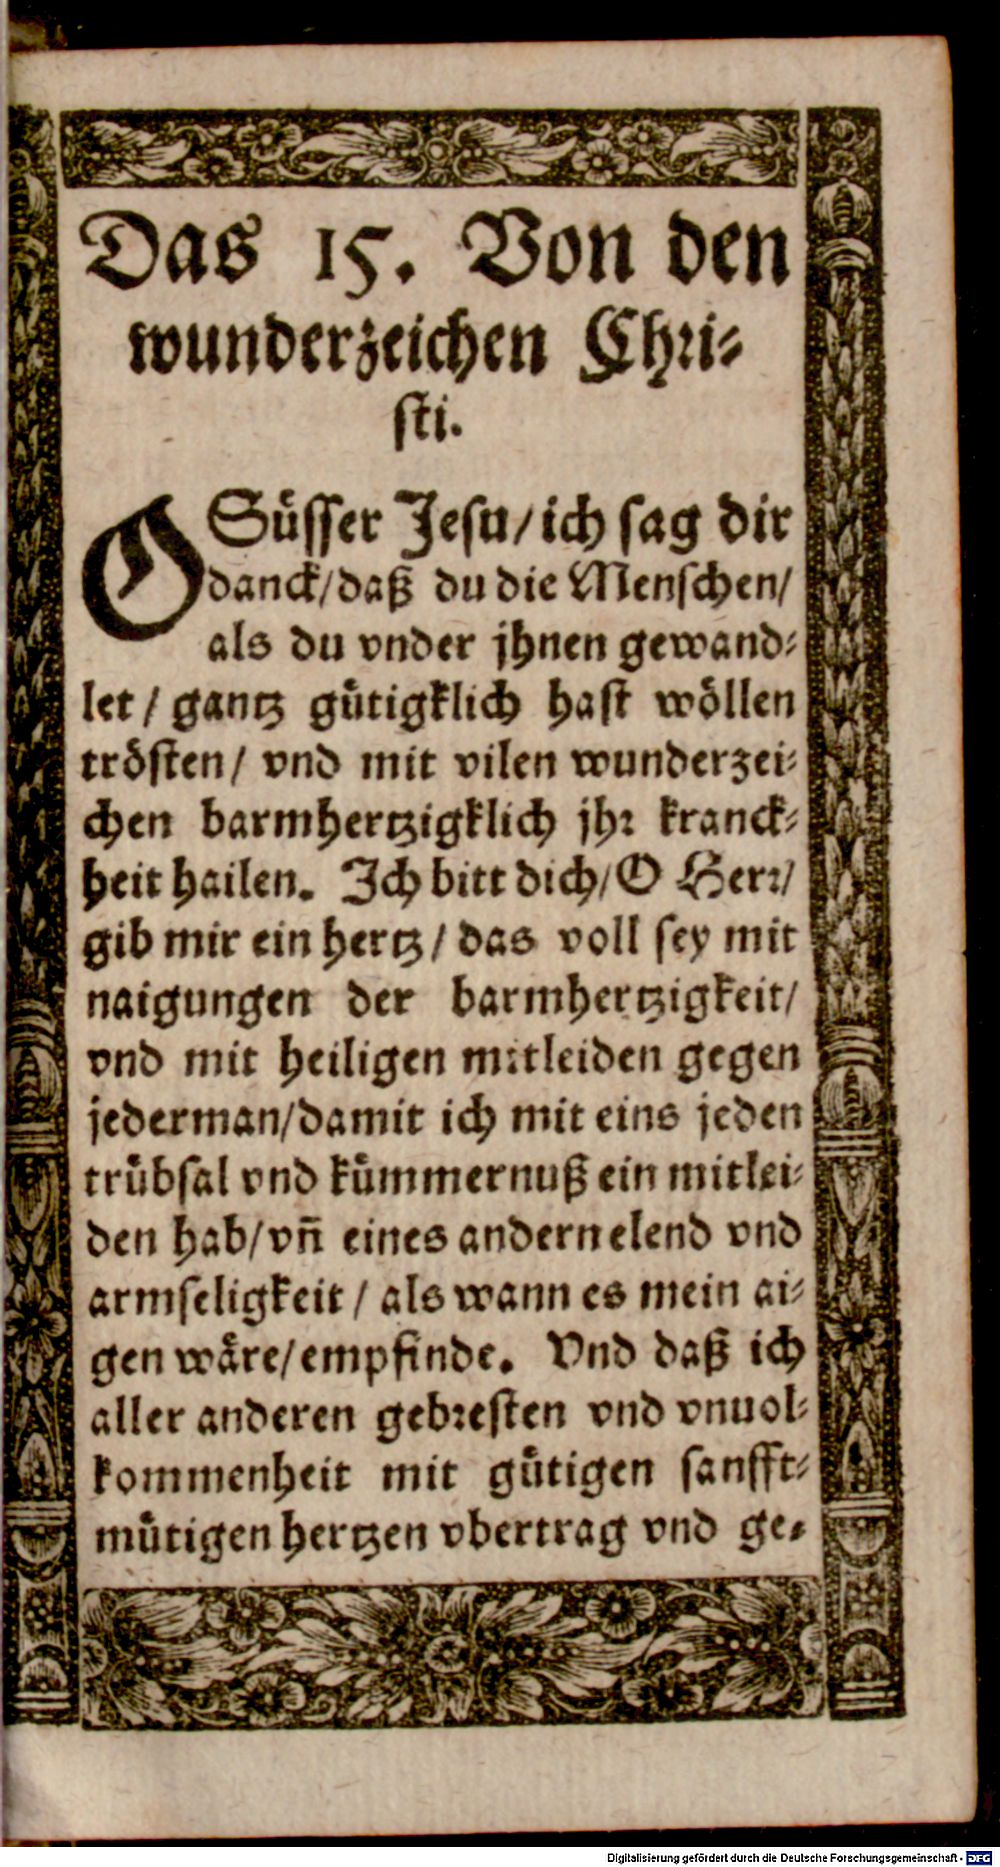 Das 15. Von den
wunderzeichen Chri⸗
ſti.
O Süſſer Jeſu/ ich ſag dir
danck/ daß du die Menſchen/
als du vnder jhnen gewand⸗
let / gantz gütigklich haſt wöllen
tröſten/ vnd mit vilen wunderzei⸗
chen barmhertzigklich jhꝛ kranck⸗
heit hailen. Ich bitt dich/ O Herꝛ/
gib mir ein hertz/ das voll ſey mit
naigungen der barmhertzigkeit/
vnd mit heiligen mitleiden gegen
jederman/ damit ich mit eins jeden
trübſal vnd kümmernuß ein mitlei⸗
den hab/ vñ eines andern elend vnd
armſeligkeit / als wann es mein ai⸗
gen wäre/ empfinde. Vnd daß ich
aller anderen gebꝛeſten vnd vnuol⸗
kommenheit mit gütigen ſanfft⸗
mütigen hertzen vbertrag vnd ge⸗
Digitalisierung gefördert durch die Deutsche Forschungsgemeinschaft - DFG